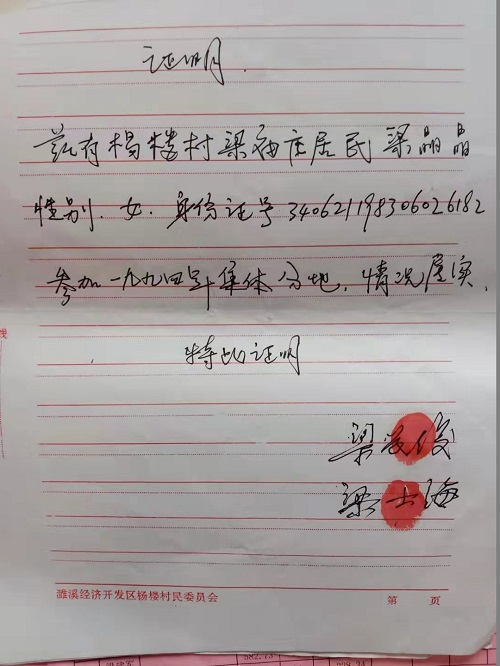 证明.
兹有杨楼村梁庙庄居民梁晶晶
性别.女.身份证号340621198306026182
参加一九九四年集体分地.情况属实.
特此证明
梁俊
梁士海
濉溪经济开发区杨楼村民委员会 第 页